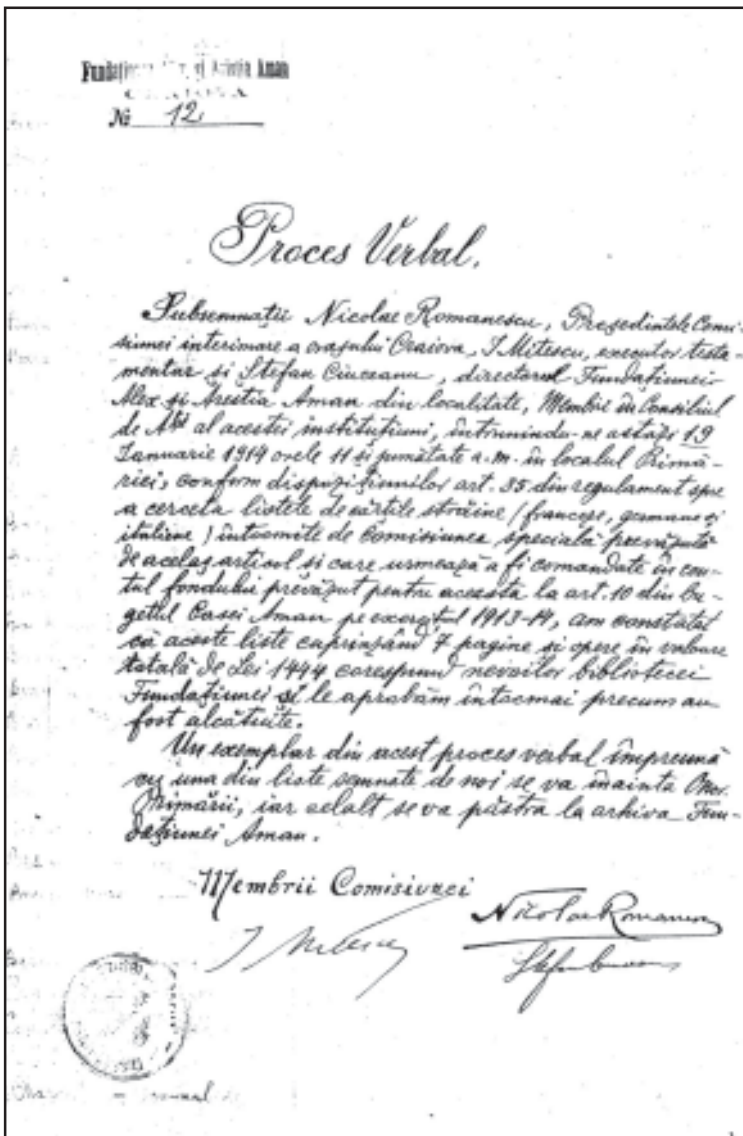 Fundațiunea Alex. și Aristia Aman
CRAIOVA
№ 12
Proces Verbal.
Subsemnații Nicolae Romanescu, Președintele Comi-
siunei interimare a orașului Craiova, I Mitescu, executor testa-
mentar și Ștefan Ciuceanu, directorul Fundațiunei
Alex și Arestia Aman din localitate, Membrii în Consiliul
de Ad-ție al acestei instituțiuni, întrunindu-ne astăzi 19
Ianuarie 1914 orele 11 și jumătate a.m. în localul Primă-
riei, conform dispozițiunilor art. 35 din regulament spre
a cerceta listele de cărțile străine (franceze, germane și
italiene) întocmite de Comisiunea specială prevăzută
de acelaș articol si care urmează a fi comandate în con-
tul fondului prevăzut pentru aceasta la art. 10 din bu-
getul Casei Aman pe exercițiul 1913-14, am constatat
că aceste liste cuprinzând 7 pagine si opere în valoare
totală de Lei 1444 corespund nevoilor bibliotecei
Fundațiunei și le aprobăm întocmai precum au
fost alcătuite.
Un exemplar din acest proces verbal împreună
cu una din liste semnate de noi se va înainta Onor.
Primării, iar celalt se va păstra la arhiva Fun-
dațiunei Aman.
Membrii Comisiunei
Nicolae Romanescu